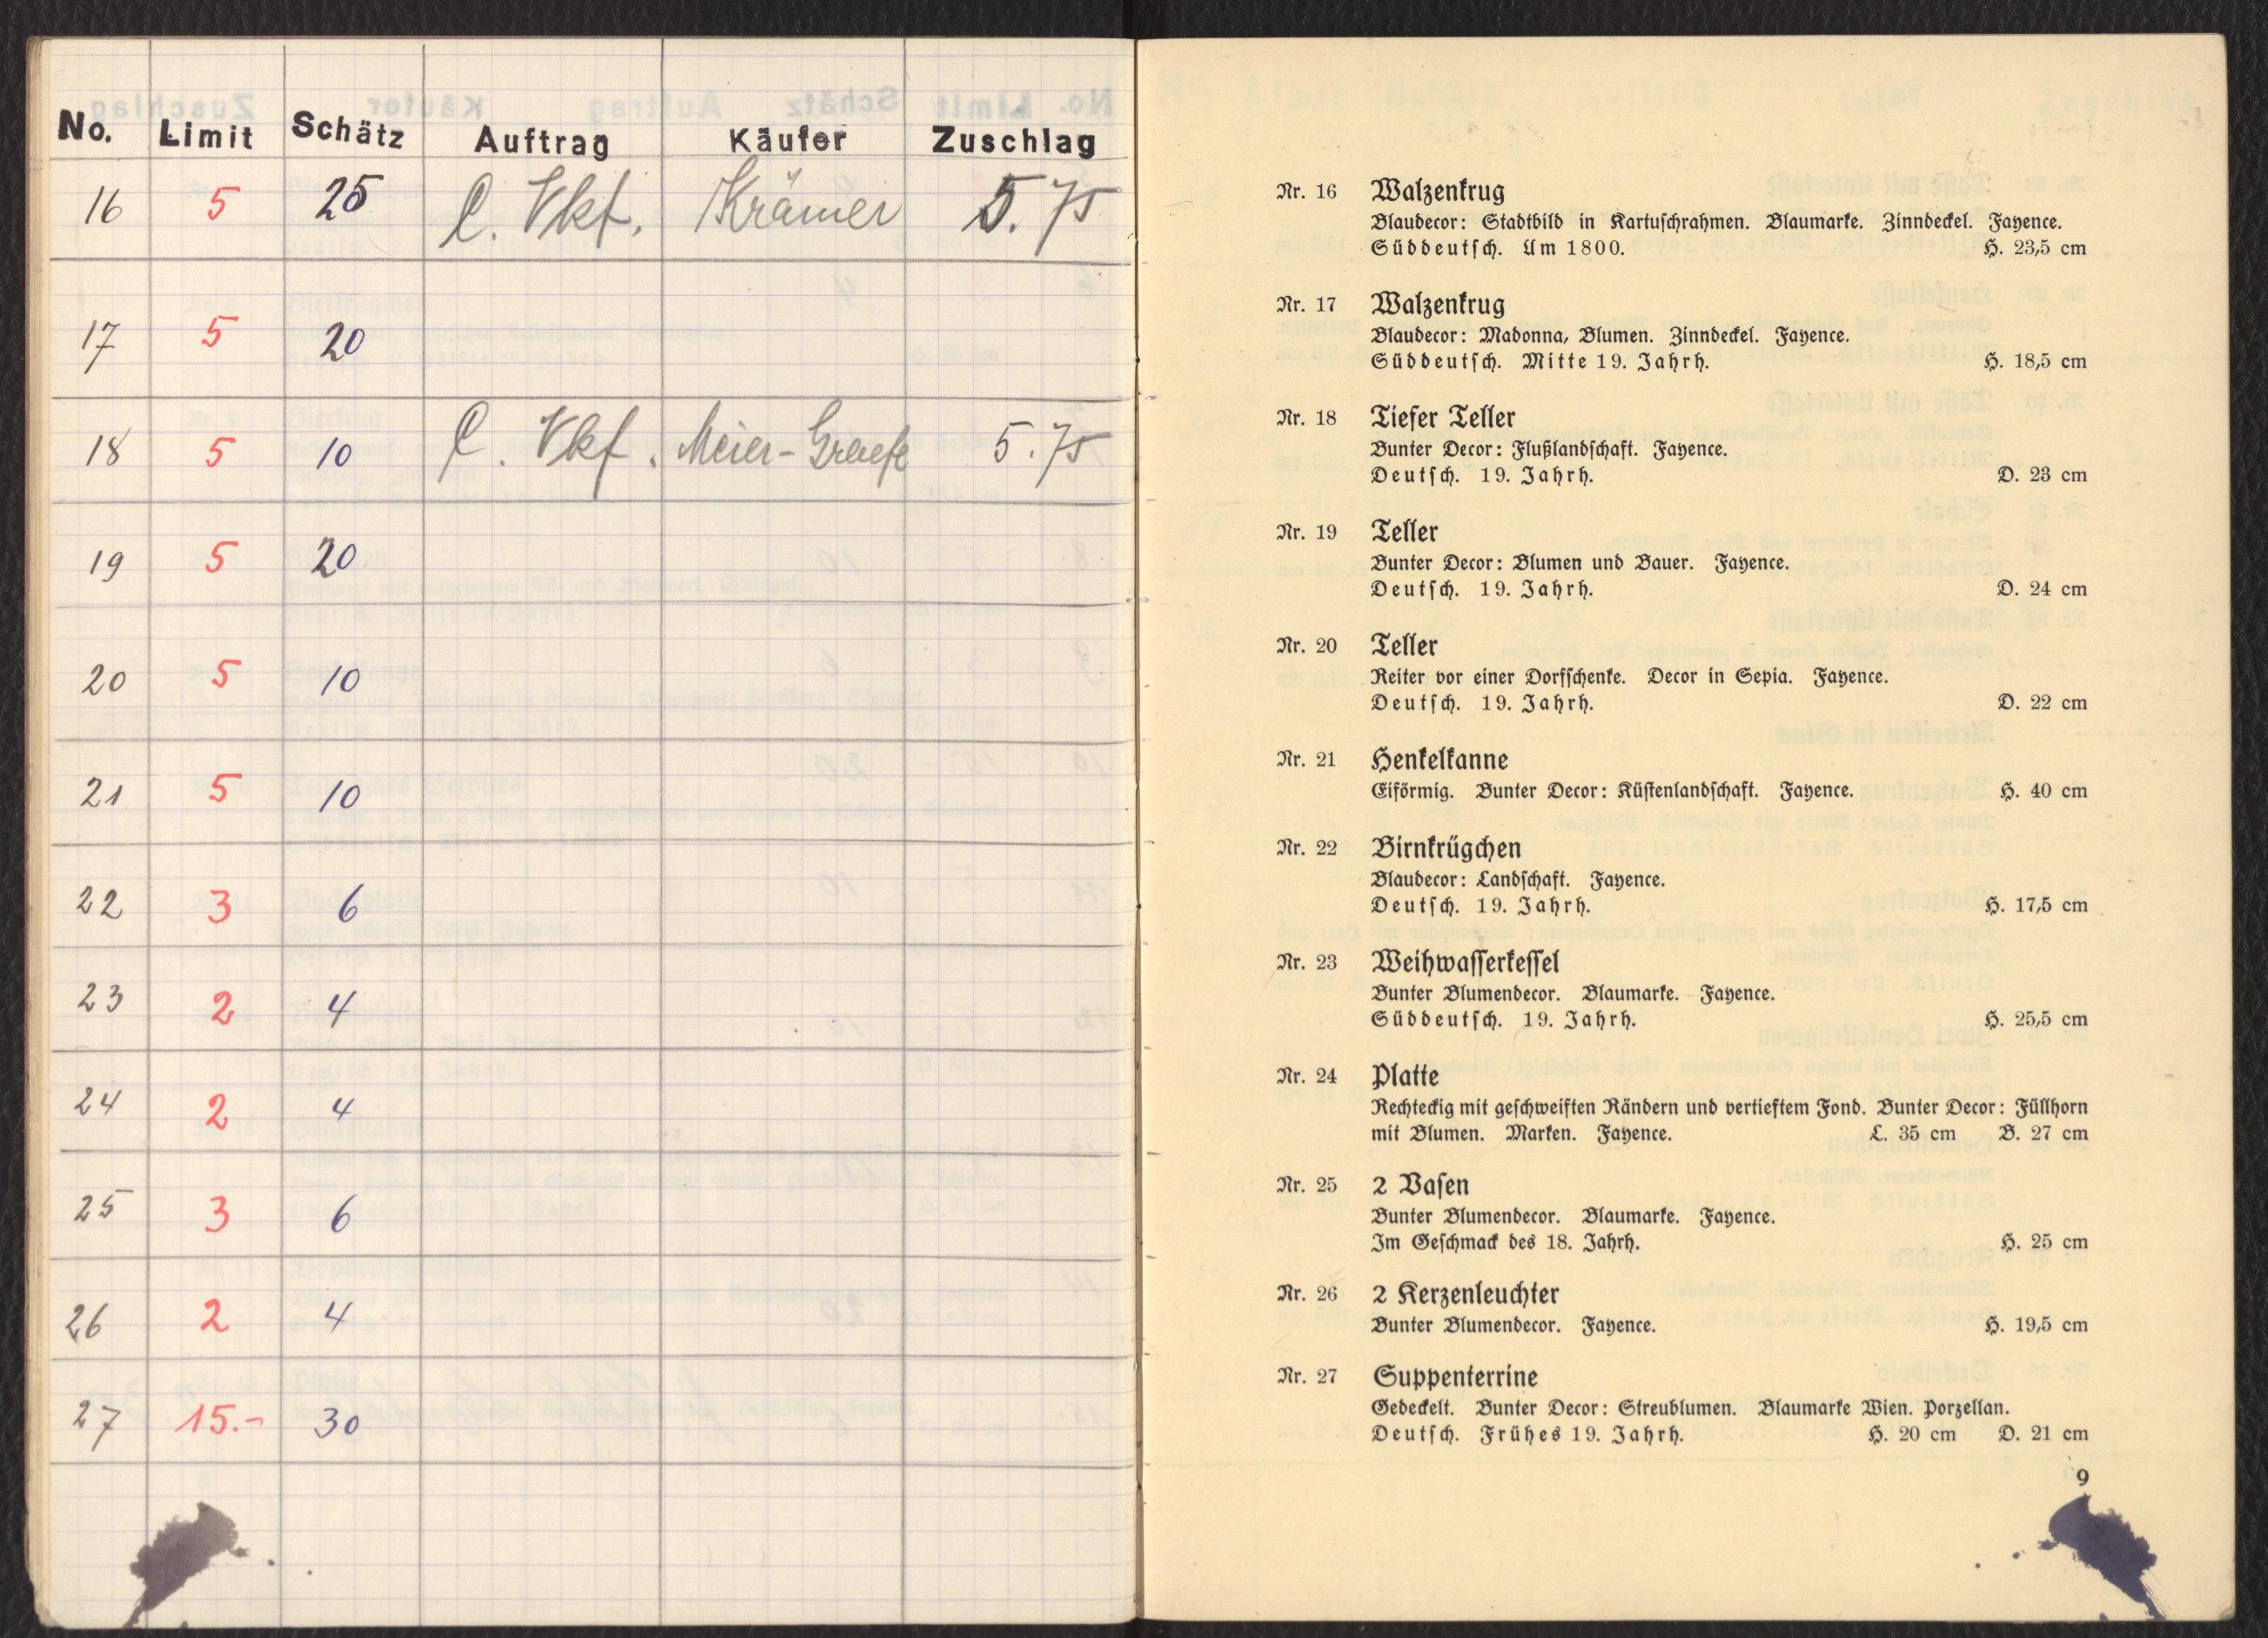 No. Limit Schätz Auftrag Käufer Zuschlag
16 5 25 l. Vkf. Krämer 5.75
17 5 20
18 5 10 l. Vkf. Meier-Graefe 5.75
19 5 20
20 5 10
21 5 10
22 3 6
23 2 4
24 2 4
25 3 6
26 2 4
27 15.- 30
Nr. 16 Walzenkrug
Blaudecor: Stadtbild in Kartuschrahmen. Blaumarke. Zinndeckel. Fayence.
Süddeutsch. Um 1800. H. 23,5 cm
Nr. 17 Walzenkrug
Blaudecor: Madonna, Blumen. Zinndeckel. Fayence.
Süddeutsch. Mitte 19. Jahrh. H. 18,5 cm
Nr. 18 Tiefer Teller
Bunter Decor: Flußlandschaft. Fayence.
Deutsch. 19. Jahrh. D. 23 cm
Nr. 19 Teller
Bunter Decor: Blumen und Bauer. Fayence.
Deutsch. 19. Jahrh. D. 24 cm
Nr. 20 Teller
Reiter vor einer Dorfschenke. Decor in Sepia. Fayence.
Deutsch. 19. Jahrh. D. 22 cm
Nr. 21 Henkelkanne
Eiförmig. Bunter Decor: Küstenlandschaft. Fayence. H. 40 cm
Nr. 22 Birnkrügchen
Blaudecor: Landschaft. Fayence.
Deutsch. 19. Jahrh. H. 17,5 cm
Nr. 23 Weihwasserkessel
Bunter Blumendecor. Blaumarke. Fayence.
Süddeutsch. 19. Jahrh. H. 25,5 cm
Nr. 24 Platte
Rechteckig mit geschweiften Rändern und vertieftem Fond. Bunter Decor: Füllhorn
mit Blumen. Marken. Fayence. L. 35 cm B. 27 cm
Nr. 25 2 Vasen
Bunter Blumendecor. Blaumarke. Fayence.
Im Geschmack des 18. Jahrh. H. 25 cm
Nr. 26 2 Kerzenleuchter
Bunter Blumendecor. Fayence. H. 19,5 cm
Nr. 27 Suppenterrine
Gedeckelt. Bunter Decor: Streublumen. Blaumarke Wien. Porzellan.
Deutsch. Frühes 19. Jahrh. H. 20 cm D. 21 cm
9